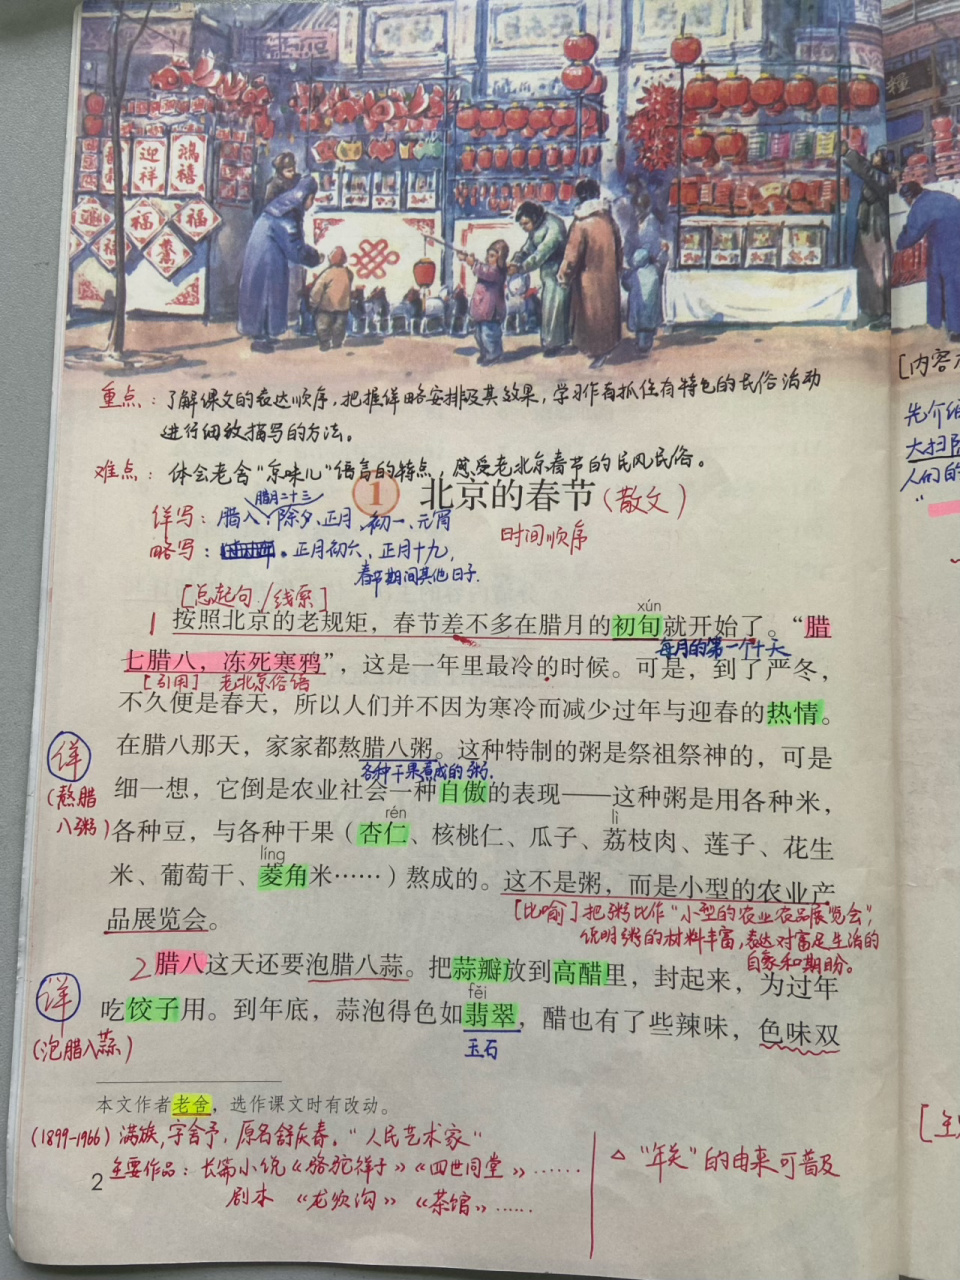 迎祥
鸿禧
福
福
福
重点：了解课文的表达顺序，把握详略安排及其效果，学习作者抓住有特色的民俗活动
进行细致描写的方法。
难点：体会老舍“京味儿”语言的特点，感受老北京春节的民风民俗。
1 北京的春节（散文）
腊月二十三
详写：腊八、除夕、正月初一、元宵
时间顺序
略写：正月初六、正月十九，
春节期间其他日子．
[总起句/线索]
xún
1 按照北京的老规矩，春节差不多在腊月的初旬就开始了。“腊
每月的第一个十天
七腊八，冻死寒鸦”，这是一年里最冷的时候。可是，到了严冬，
[引用] 老北京俗语
不久便是春天，所以人们并不因为寒冷而减少过年与迎春的热情。
详
在腊八那天，家家都熬腊八粥。这种特制的粥是祭祖祭神的，可是
各种干果煮成的粥．
（熬腊八粥）
细一想，它倒是农业社会一种自傲的表现——这种粥是用各种米，
rén
lì
各种豆，与各种干果（杏仁、核桃仁、瓜子、荔枝肉、莲子、花生
líng
米、葡萄干、菱角米……）熬成的。这不是粥，而是小型的农业产
品展览会。
[比喻]把粥比作“小型的农业农品展览会”，
说明粥的材料丰富，表达对富足生活的
自豪和期盼。
2 腊八这天还要泡腊八蒜。把蒜瓣放到高醋里，封起来，为过年
详
fěi
吃饺子用。到年底，蒜泡得色如翡翠，醋也有了些辣味，色味双
玉石
（泡腊八蒜）
本文作者老舍，选作课文时有改动。
（1899-1966）满族，字舍予，原名舒庆春。“人民艺术家”
主要作品：长篇小说《骆驼祥子》《四世同堂》……
剧本 《龙须沟》 《茶馆》……
△ “年关”的由来可普及
2
[内容
先介绍
大扫除
人们的